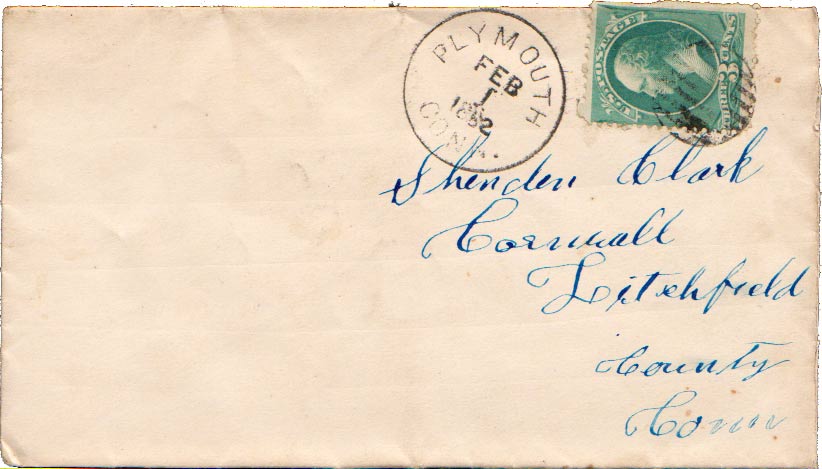 PLYMOUTH
FEB
1
1882
CONN.
U.S. POSTAGE
THREE 3 CENTS
Shenden Clark
Cornwall
Litchfield
County
Conn